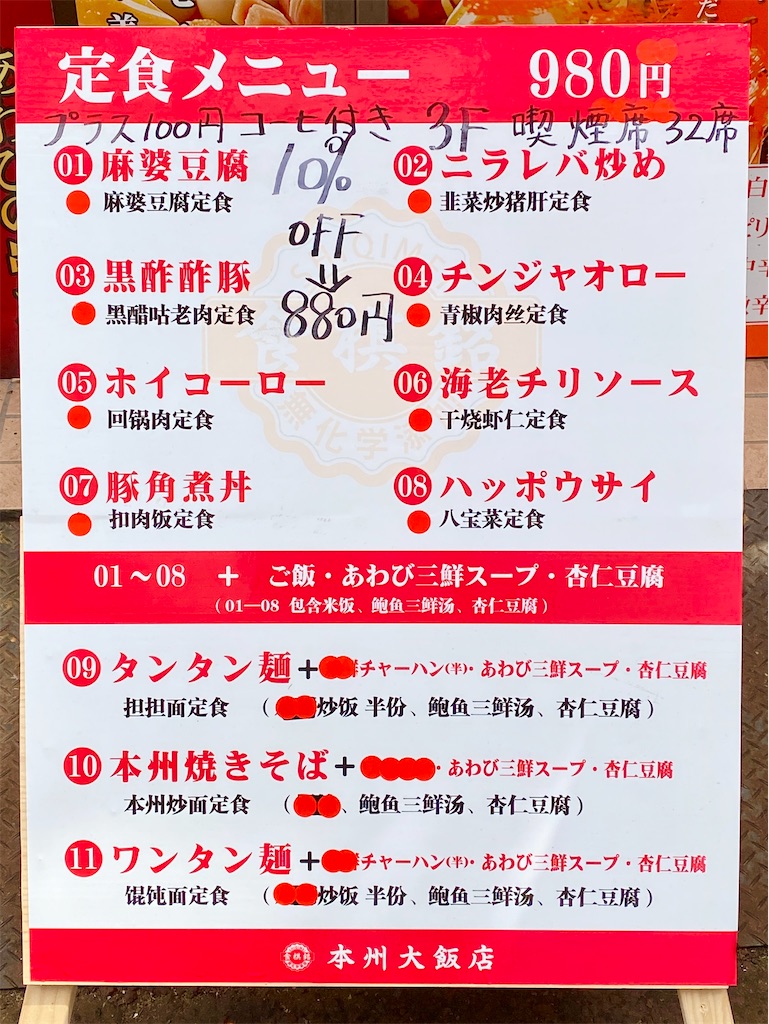 定食メニュー 980円
プラス100円コーヒー付き 3F 喫煙席32席
01 麻婆豆腐
麻婆豆腐定食
10%
OFF
880円
02 ニラレバ炒め
韭菜炒猪肝定食
03 黒酢酢豚
黑醋咕老肉定食
04 チンジャオロー
青椒肉丝定食
05 ホイコーロー
回锅肉定食
06 海老チリソース
干烧虾仁定食
07 豚角煮丼
扣肉饭定食
08 ハッポウサイ
八宝菜定食
無化学湯
01～08 + ご飯・あわび三鮮スープ・杏仁豆腐
(01—08 包含米饭、鲍鱼三鲜汤、杏仁豆腐)
09 タンタン麺+チャーハン(半)・あわび三鮮スープ・杏仁豆腐
担担面定食 (炒饭 半份、鲍鱼三鲜汤、杏仁豆腐)
10 本州焼きそば+・あわび三鮮スープ・杏仁豆腐
本州炒面定食 (、鲍鱼三鲜汤、杏仁豆腐)
11 ワンタン麺+チャーハン(半)・あわび三鮮スープ・杏仁豆腐
馄饨面定食 (炒饭 半份、鲍鱼三鲜汤、杏仁豆腐)
本州大飯店